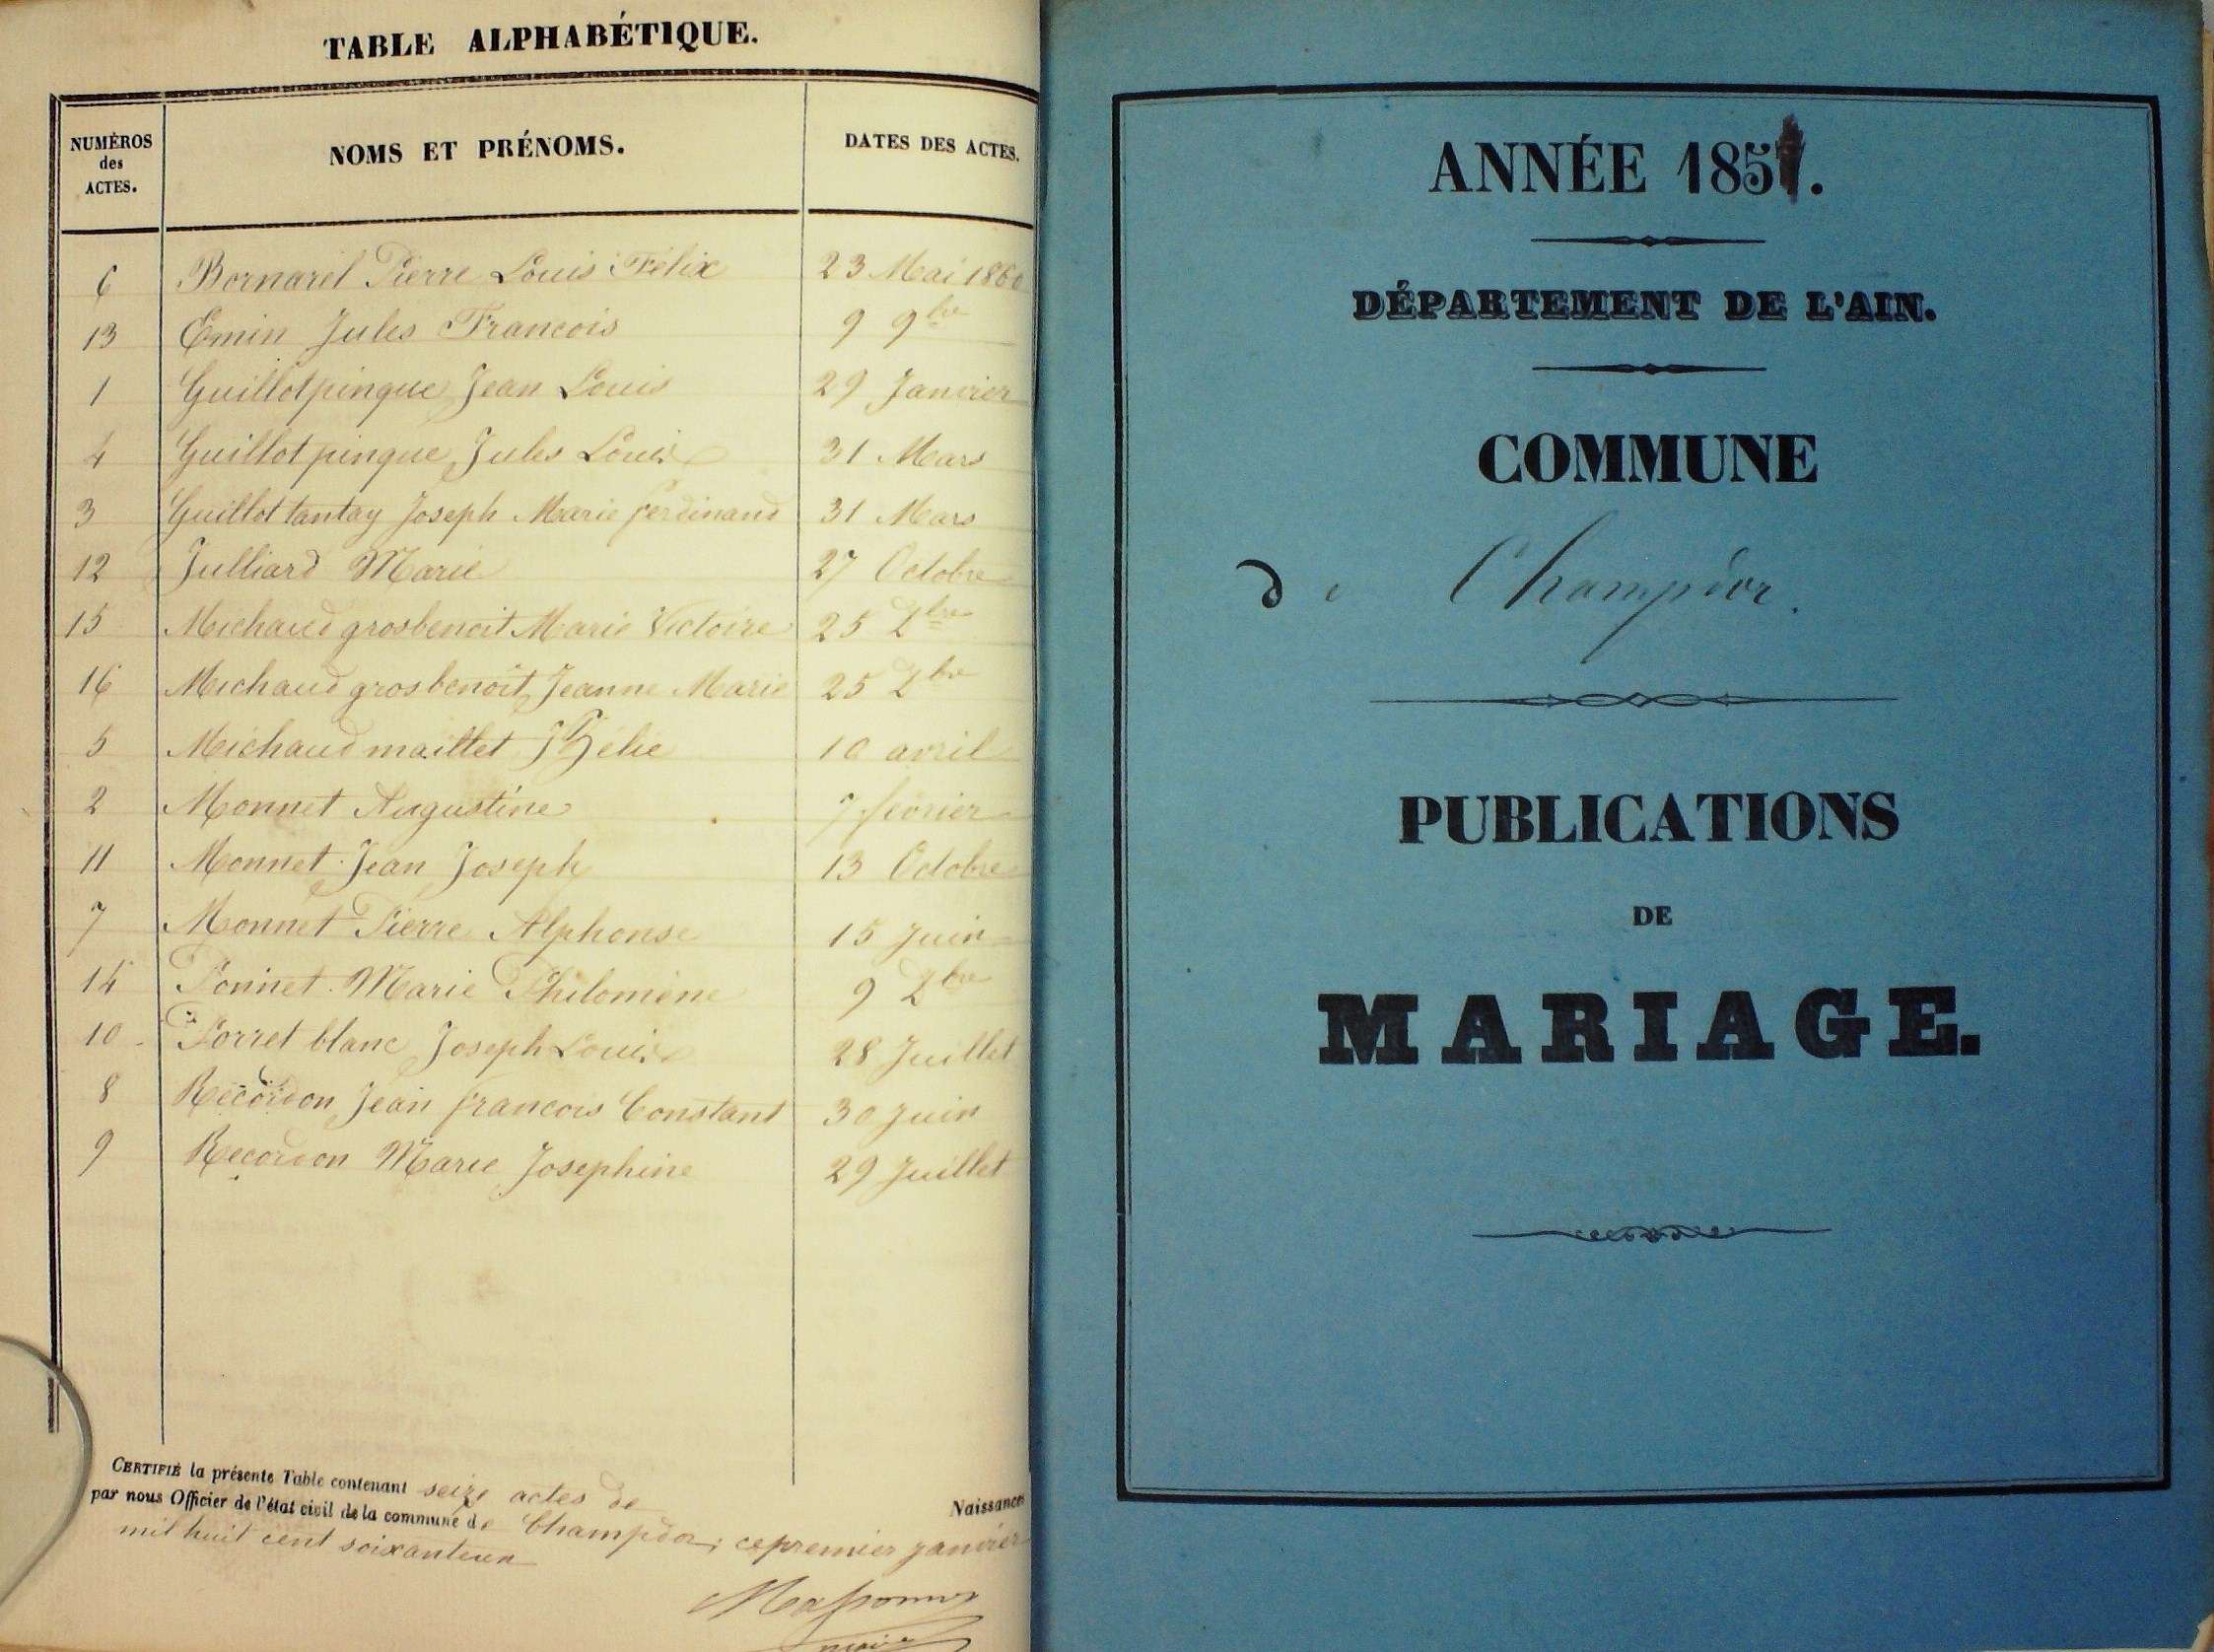 TABLE ALPHABÉTIQUE.
NUMÉROS des ACTES. NOMS ET PRÉNOMS. DATES DES ACTES.
6 Bornarel Pierre Louis Félix 23 Mai 1860
13 Emin Jules Francois 9 9bre
1 Guillotpinque Jean Louis 29 Janvier
4 Guillot pinque Jules Louis 31 Mars
3 Guillot tantay Joseph Marie ferdinand 31 Mars
12 Julliard Marie 27 Octobre
15 Michaud grosbenoit Marie Victoire 25 Xbre
16 Michaud grosbenoit Jeanne Marie 25 Xbre
5 Michaud maillet 10 avril
2 Monnet Augustine 7 février
11 Monnet Jean Joseph 13 Octobre
7 Monnet Pierre Alphonse 15 Juin
14 Ponnet Marie Philomène 9 Xbre
10 Porret blanc Joseph Louis 28 Juillet
8 Recordon Jean francois Constant 30 Juin
9 Recordon Marie Josephine 29 Juillet
CERTIFIÉ la présente Table contenant seize actes de Naissances
par nous Officier de l'état civil de la commune de Champdor, ce premier janvier
mil huit cent soixante un
maire
ANNÉE 185
DÉPARTEMENT DE L'AIN.
COMMUNE
de Champdor.
PUBLICATIONS
DE
MARIAGE.